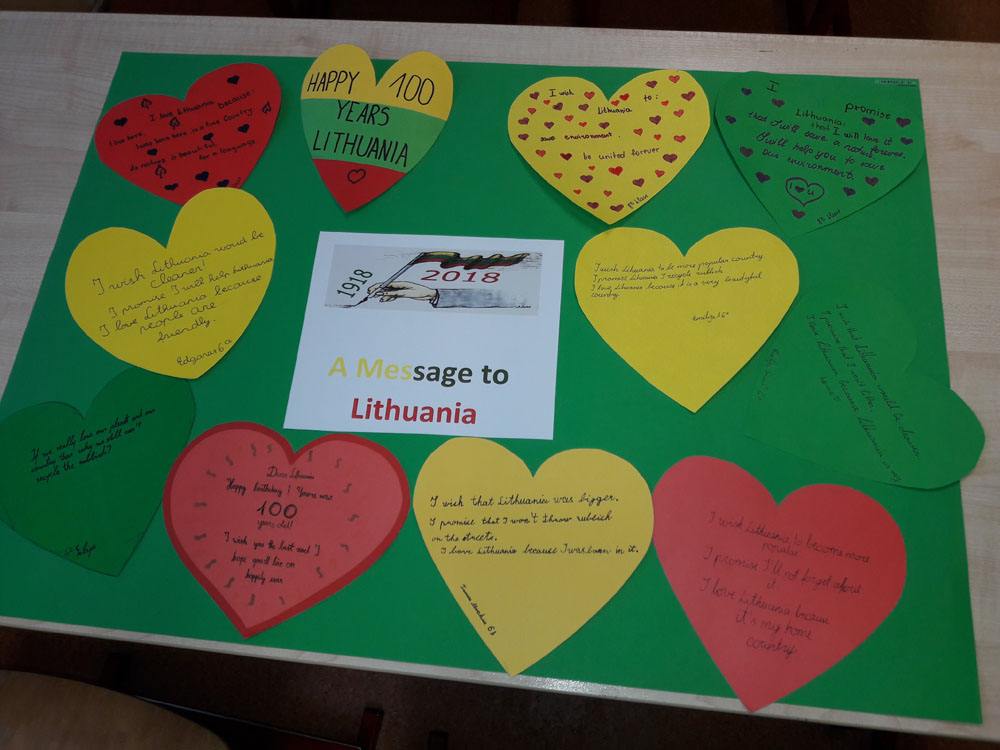 I love Lithuania because:
I live here.
I was born here is a free country
nature is beautiful
for a language
HAPPY 100
YEARS
LITHUANIA
I wish to:
Lithuania
save environment.
be united forever
I promise
Lithuania:
that I will love it
that I will save a nature forever.
I will help you to save
our environment.
I U
I wish Lithuania would be
cleaner!
I promise I will help Lithuania
I love Lithuania because
people are
friendly.
Edgaras 6a
1918
2018
A Message to
Lithuania
I wish Lithuania to be more popular country
I promise Lithuania I recycle rubbish
I love Lithuania because it is a very beautyful
country.
I wish that Lithuania would be cleaner.
I promise that I won't litter.
I love Lithuania because Lithuania is my
If we really love our planet and our
country then why we still can't
recycle the rubbish?
Dear Lithuania
Happy birthday! You're now
100
years old!
I wish you the best and I
hope you'll live on
happily ever
I wish that Lithuania was bigger.
I promise that I won't throw rubbish
on the streets.
I love Lithuania because I was born in it.
I wish Lithuania to become more
popular
I promise I'll not forget about
it
I love Lithuania because
it's my home
country